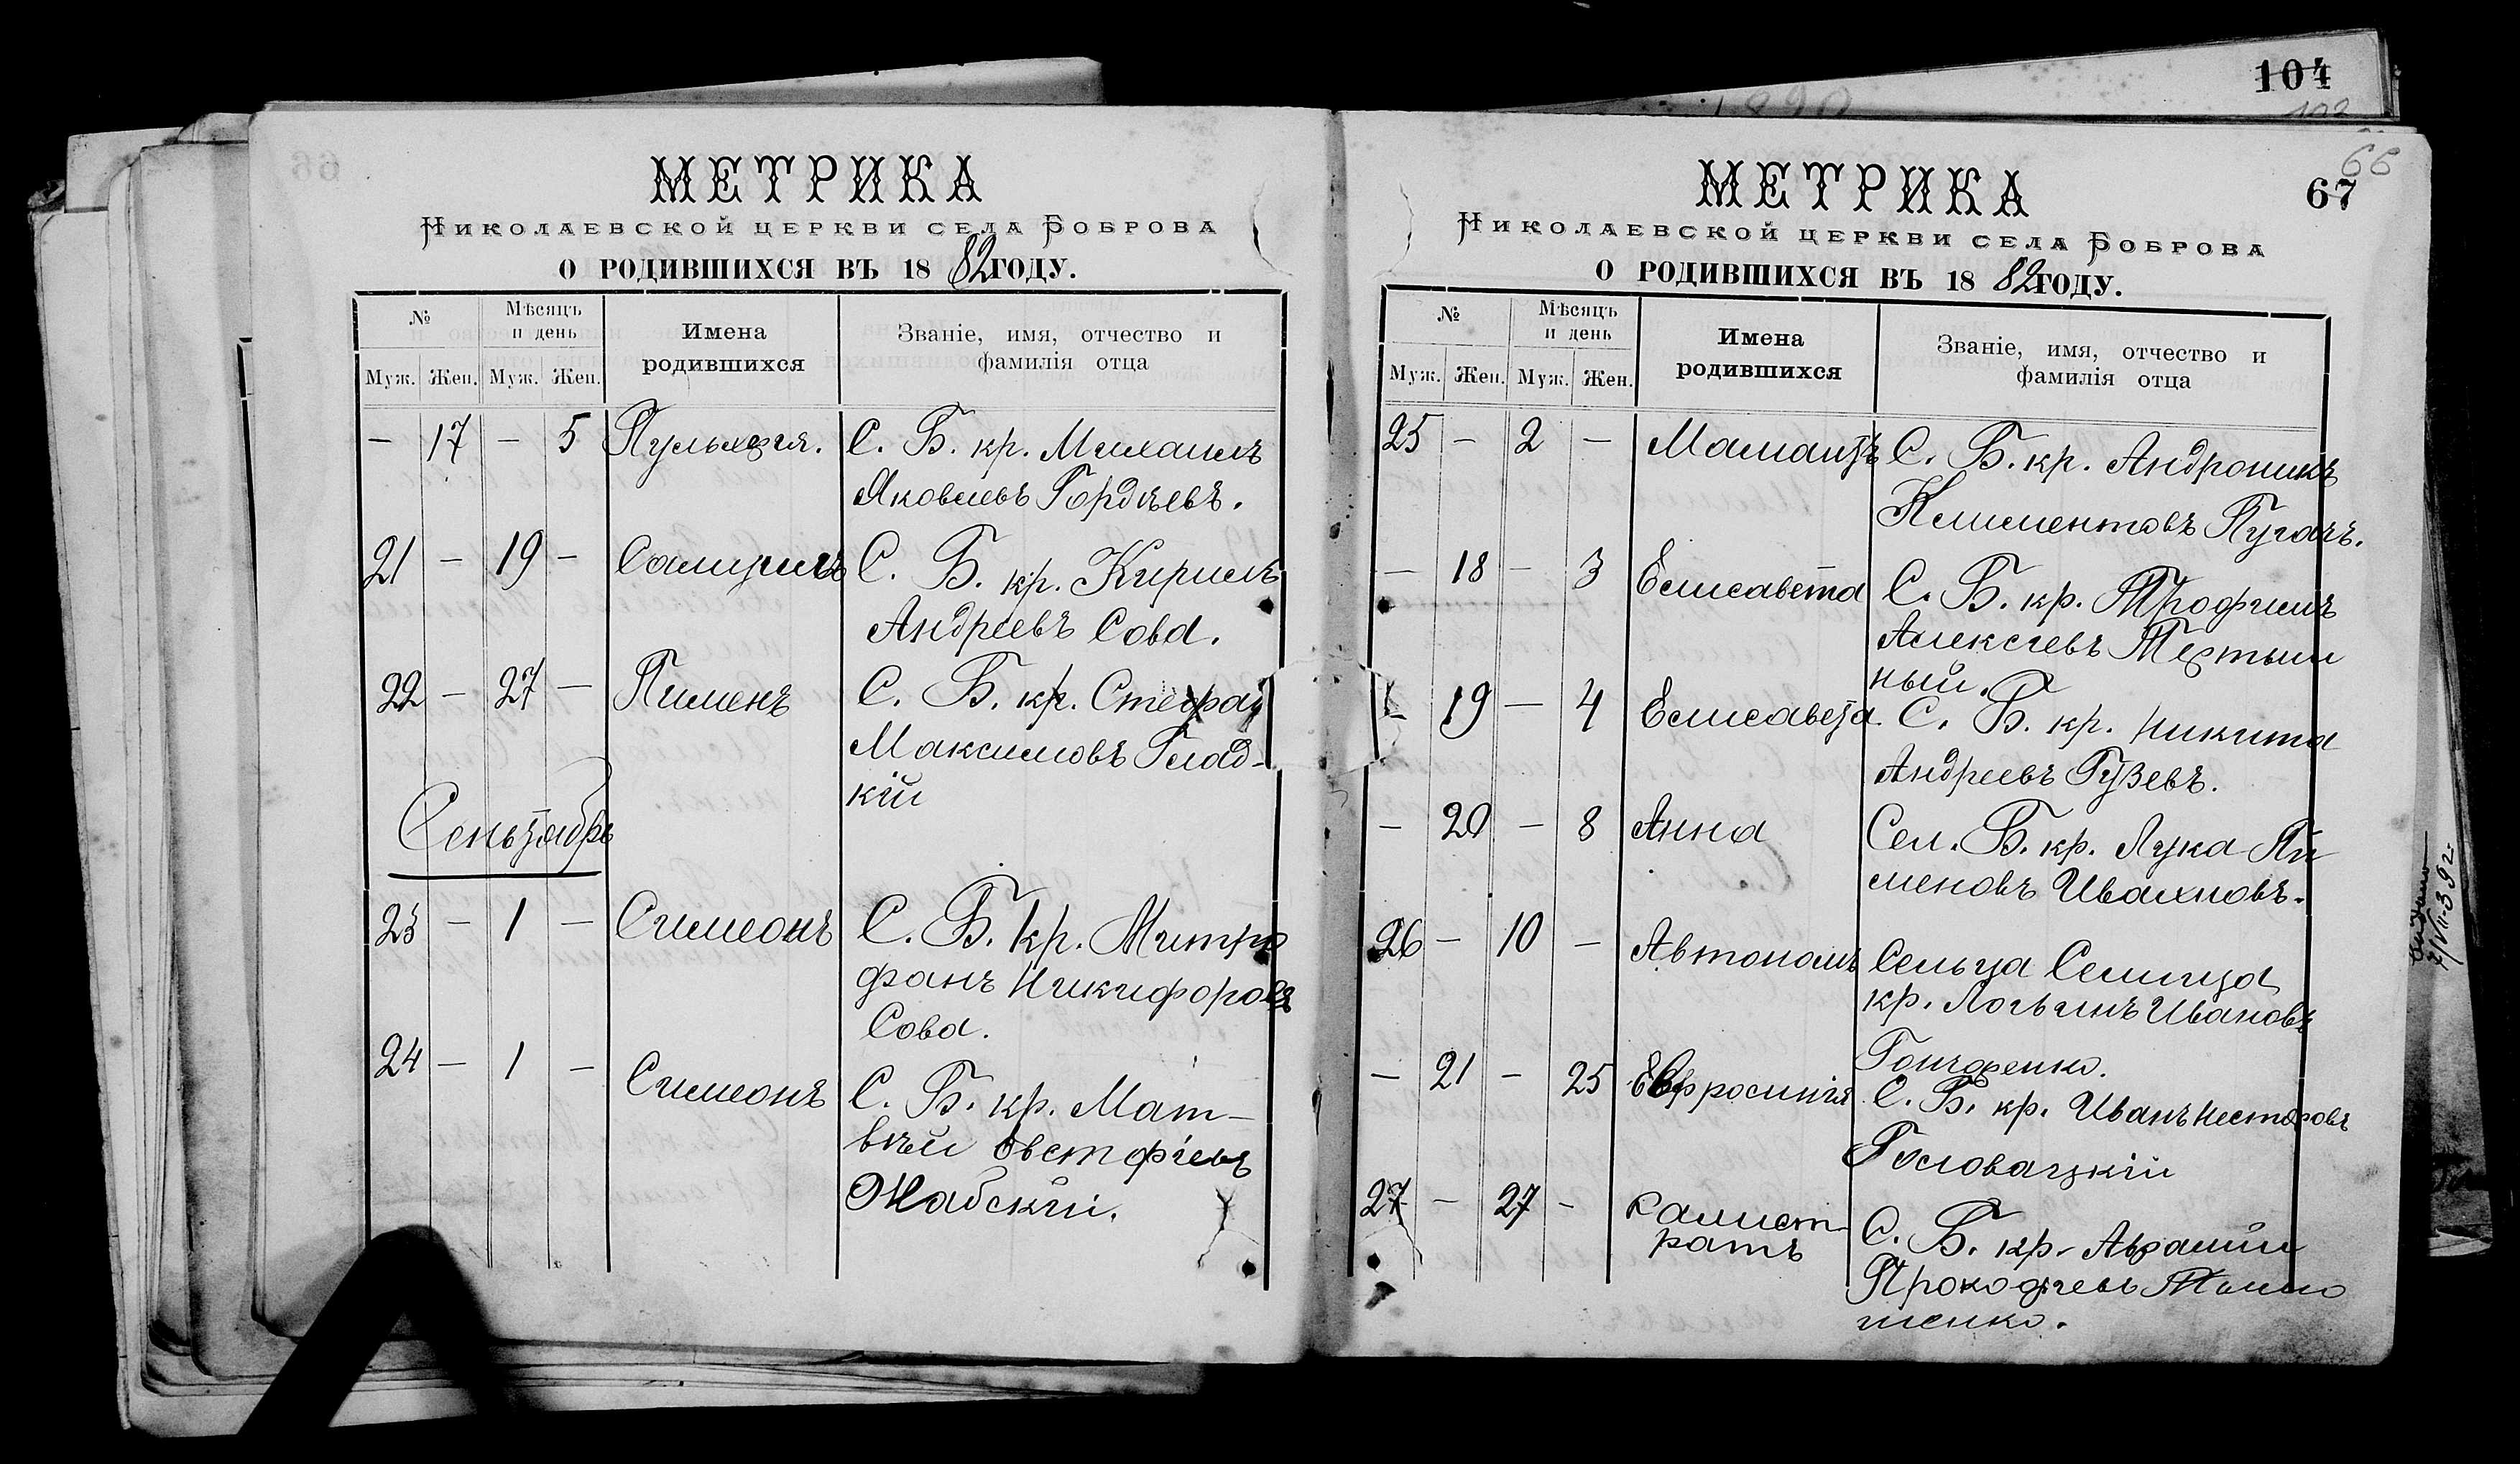 104
102
МЕТРИКА
Николаевской церкви села Боброва
О РОДИВШИХСЯ ВЪ 1882 ГОДУ.
№ Мѣсяцъ и день Имена родившихся Званіе, имя, отчество и фамилія отца
Муж. Жен. Муж. Жен.
— 17 — 5 Пульхерія. С. Б. кр. Михаилъ
Яковлевъ Гордѣевъ.
21 — 19 — Самуилъ С. Б. кр. Кирилъ
Андреевъ Сова.
22 — 27 — Пименъ С. Б. кр. Стефан
Максимовъ Глад-
кій
Сеньтабрь
23 — 1 — Симеонъ С. Б. кр. Митро
фанъ Никифоровъ
Сова.
24 — 1 — Симеонъ С. Б. кр. Мат-
вѣй Евстафіевъ
Жабскій.
66
67
МЕТРИКА
Николаевской церкви села Боброва
О РОДИВШИХСЯ ВЪ 1882 ГОДУ.
№ Мѣсяцъ и день Имена родившихся Званіе, имя, отчество и фамилія отца
Муж. Жен. Муж. Жен.
25 — 2 — Мамантъ С. Б. кр. Андроникъ
Климентовъ Пугачъ.
— 18 — 3 Елисавета С. Б. кр. Трофимъ
Алексѣевъ
ный.
— 19 — 4 Елисавета. С. Б. кр. Никита
Андреевъ Гузевъ.
— 20 — 8 Анна Сел. Б. кр. Лука Пи
меновъ Ивахновъ.
26 — 10 — Автономъ Сельца Селища
кр. Логъинъ Ивановъ
Гончаренко.
— 21 — 25 Евфросинія С. Б. кр. Иванъ Несторовъ
Головацкій
27 — 27 — Калист-
ратъ С. Б. кр. Аврамій
Прокофіевъ Тымо
шенко.